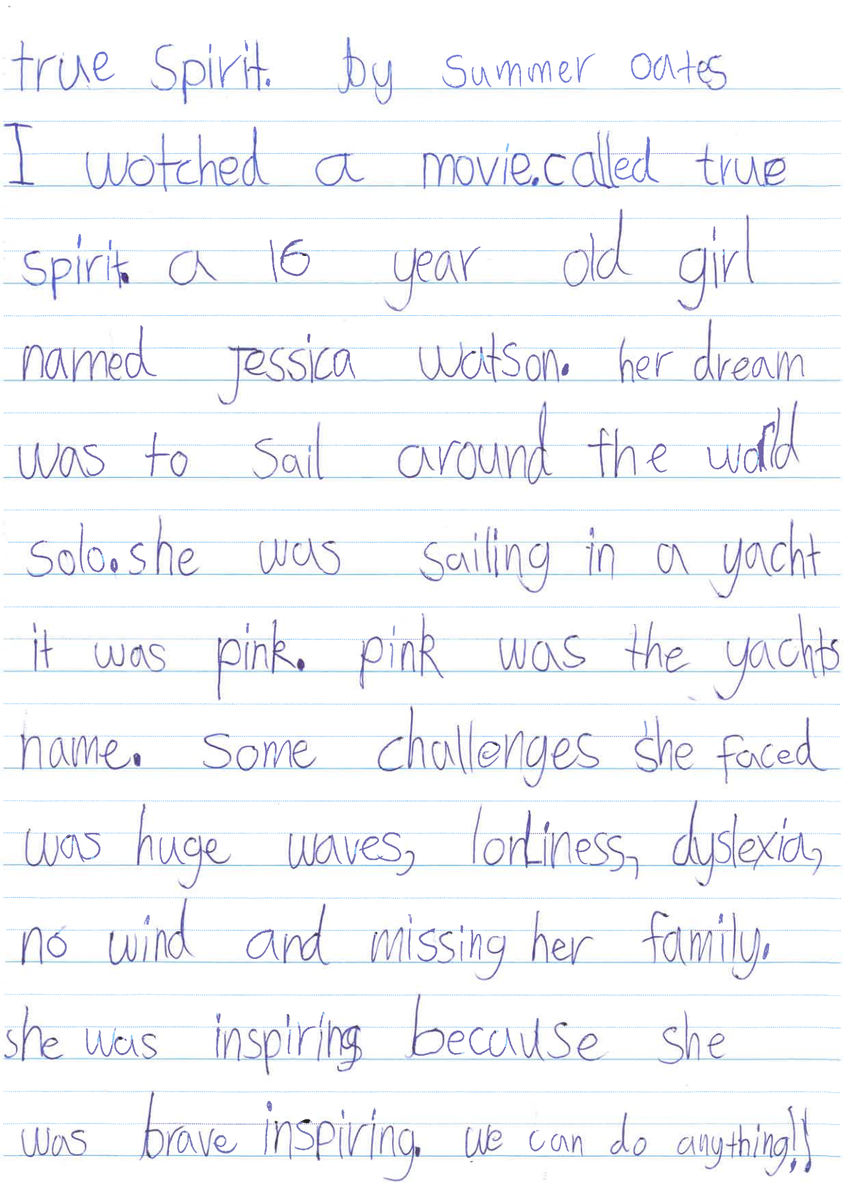 true Spirit. by summer oates
I wotched a movie.called true
spirit. a 16 year old girl
named Jessica watson. her dream
was to sail around the world
solo.she was sailing in a yacht
it was pink. pink was the yachts
name. some challenges she faced
was huge waves, lonliness, dyslexia,
no wind and missing her family.
she was inspiring because she
was brave inspiring. we can do anything!!